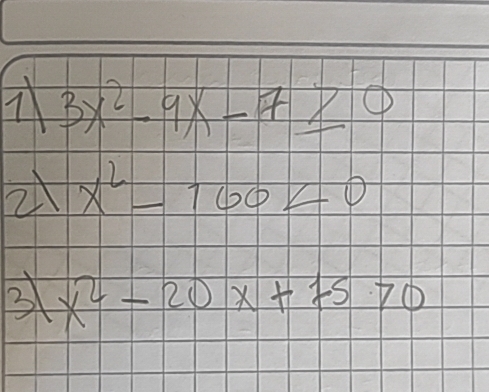 1\ 3x² - 9x - 7 ≥ 0
2\ x² - 100 < 0
3\ x² - 20x + 75 > 0